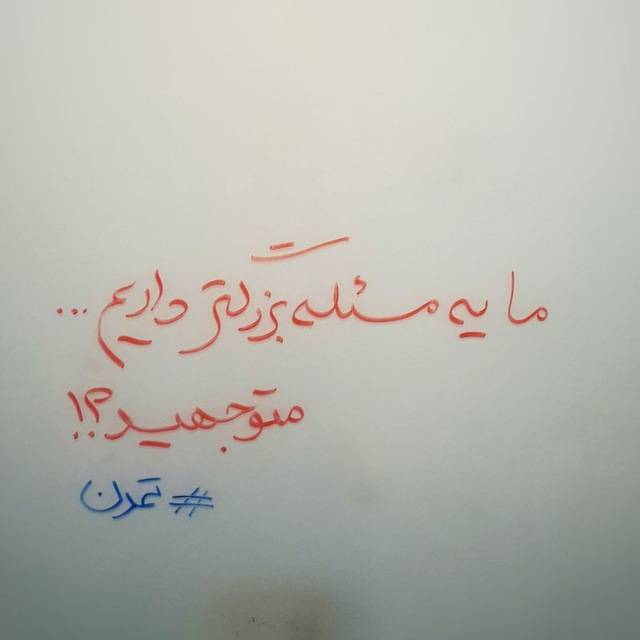 ما یه مسئله بزرگتر داریم ...
متوجهید؟!
#تمدن